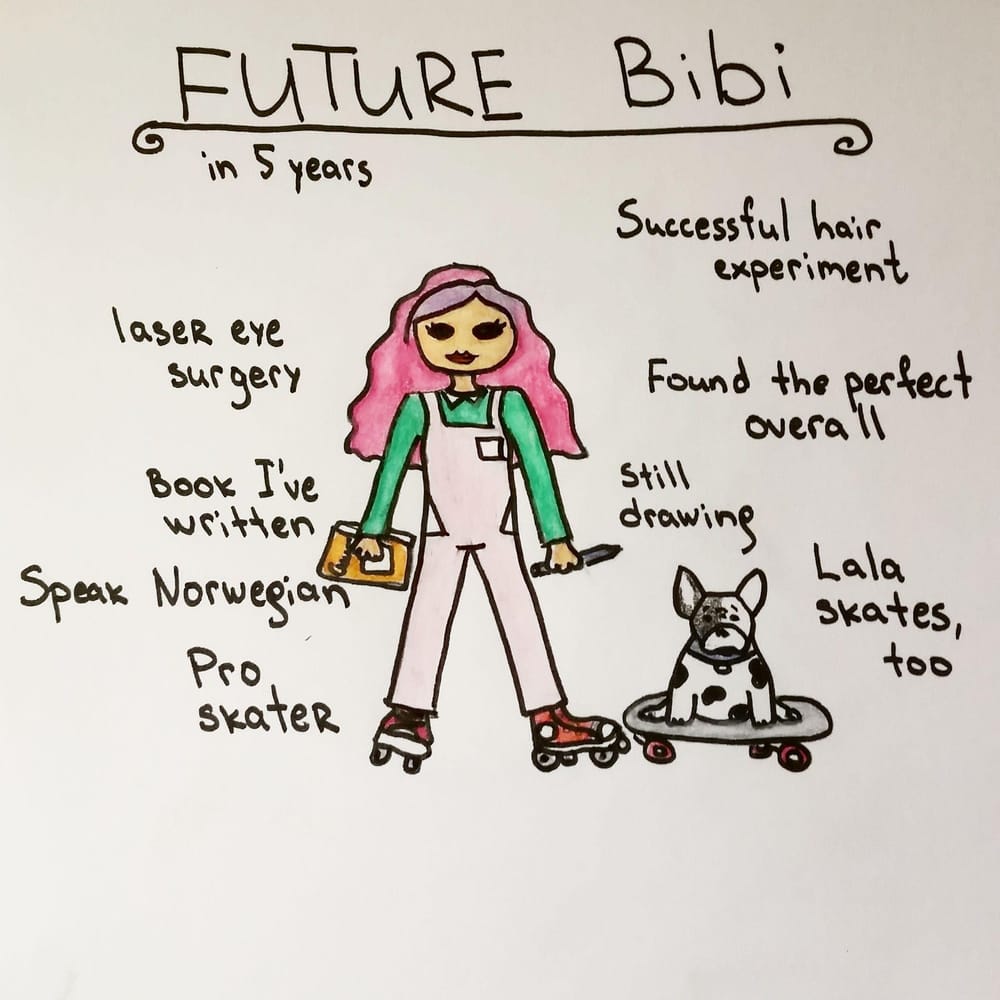 FUTURE Bibi
in 5 years
Successful hair
experiment
laser eye
surgery
Found the perfect
overall
Book I've
written
Still
drawing
Speak Norwegian
Lala
skates,
too
Pro
skater